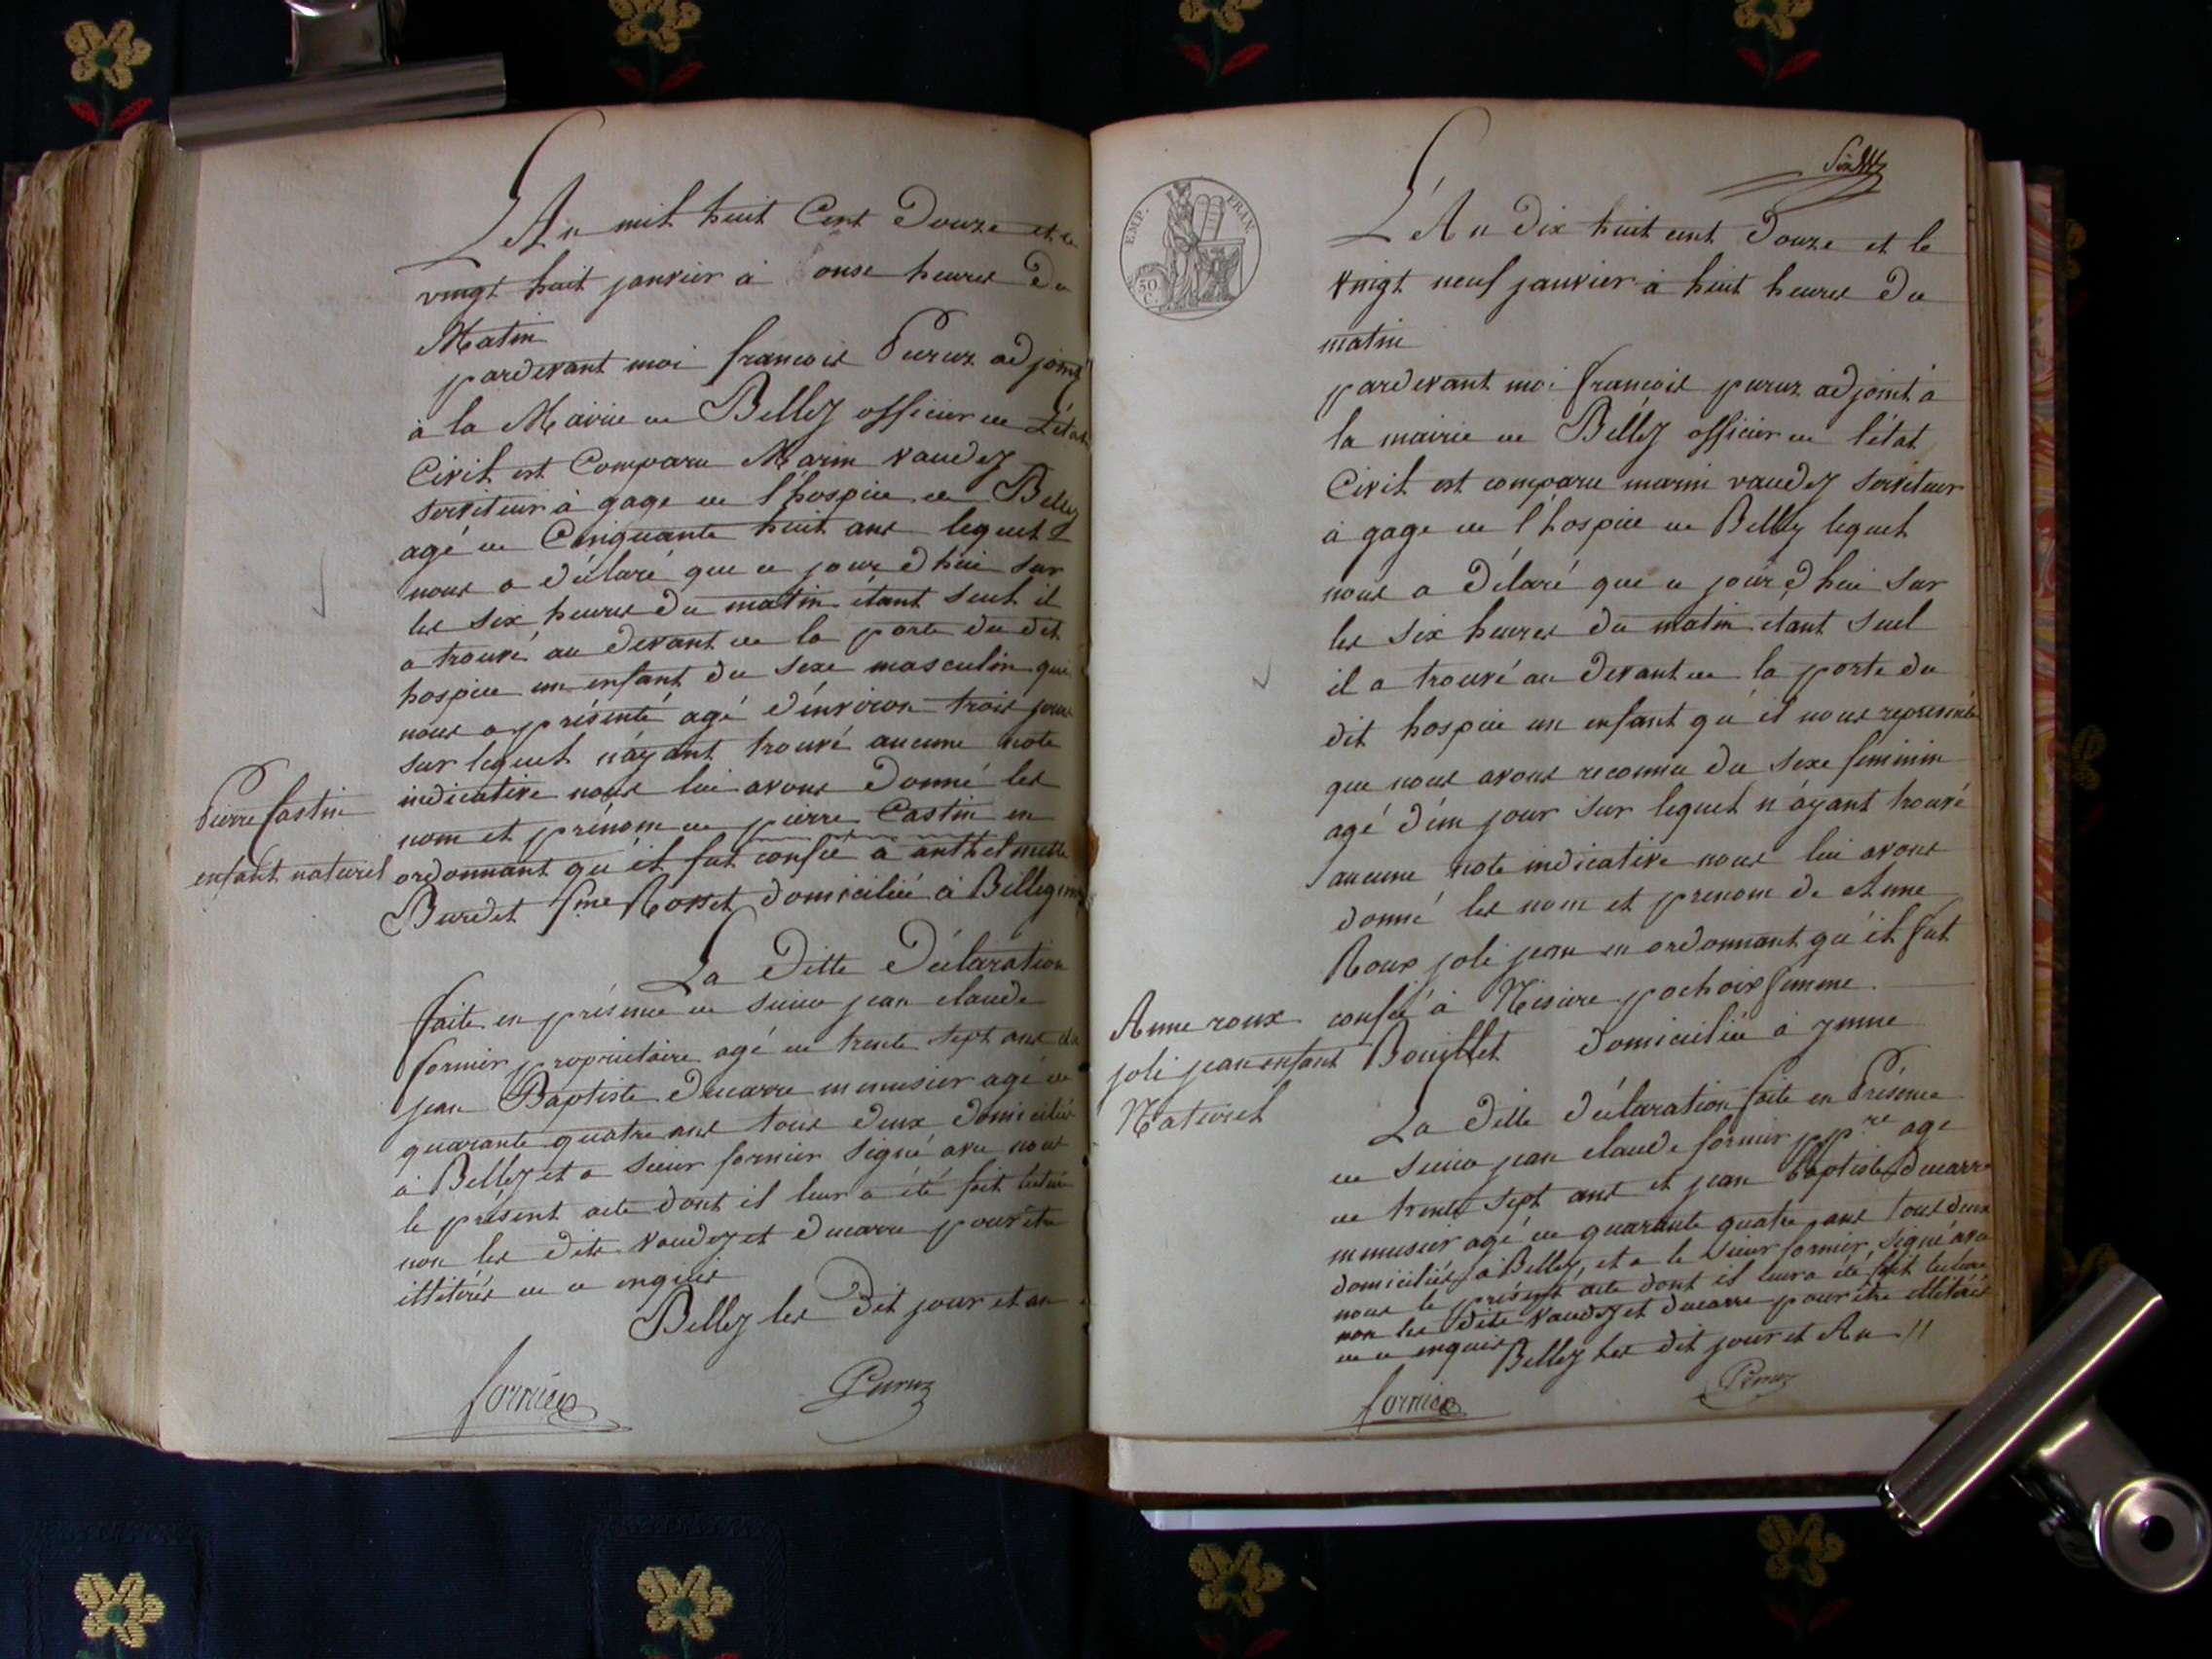 L'An mil huit Cent Douze et le
vingt huit janvier à onse heures Du
Matin
pardevant moi francois Peruz adjoint
à la Mairie de Belley officier de L'état
Civil est Comparu Marin vaudey
serviteur à gage de l'hospice de Belley
agé de Cinquante huit ans lequel
nous a déclaré que ce jour d'hui sur
les six heures du matin étant seul il
a trouvé au devant de la porte du dit
hospice un enfant du sexe masculin qui
nous a présenté agé d'environ trois jours
sur lequel n'ayant trouvé aucune note
indicative nous lui avons Donné les
nom et prénom de pierre Castin en
ordonnant qu'il fut confié à anthelmette
Burdet fme Rosset domiciliée à Billignin
Pierre Castin
enfant naturel
La Ditte Déclaration
faite en présence de sieur jean claude
fornier propriétaire agé de trente sept ans et
jean Baptiste Ducarre menusier agé de
quarante quatre ans tous deux domiciliés
à Belley et a sieur fornier signé avec nous
le présent acte dont il leur a été fait lecture
non les dits vaudey et Ducarre pour être
illitérés de ce enquis
Belley les Dit jour et an
fornier Peruz
EMP. FRAN.
50 C.
L'An Dix huit cent Douze et le
vingt neuf janvier à huit heures Du
matin
pardevant moi francois peruz adjoint à
la mairie de Belley officier de l'état
Civil est comparu marin vaudey serviteur
à gage de l'hospice de Belley lequel
nous a Délaré que ce jour d'hui sur
les six heures du matin etant seul
il a trouvé au devant de la porte du
dit hospice un enfant qu'il nous represente
que nous avons reconnu du sexe feminin
agé d'un jour sur lequel n'ayant trouvé
aucune note indicative nous lui avons
donné les nom et prenom de Anne
Roux joli jean en ordonnant qu'il fut
confié à pochoix femme
Bouillet domiciliée à yenne
Anne roux
joli jean enfant
Naturel
La Ditte déclaration faite en Présence
de sieur jean claude fornier ppre agé
de trente sept ans et jean baptiste Ducarre
menusier agé de quarante quatre ans tous deux
domiciliés à Belley, et a le sieur fornier signé avec
nous le présent acte dont il leur a été fait lecture
non les dits vaudey et ducarre pour être illitérés
de ce enquis Belley les dit jour et An
fornier Peruz